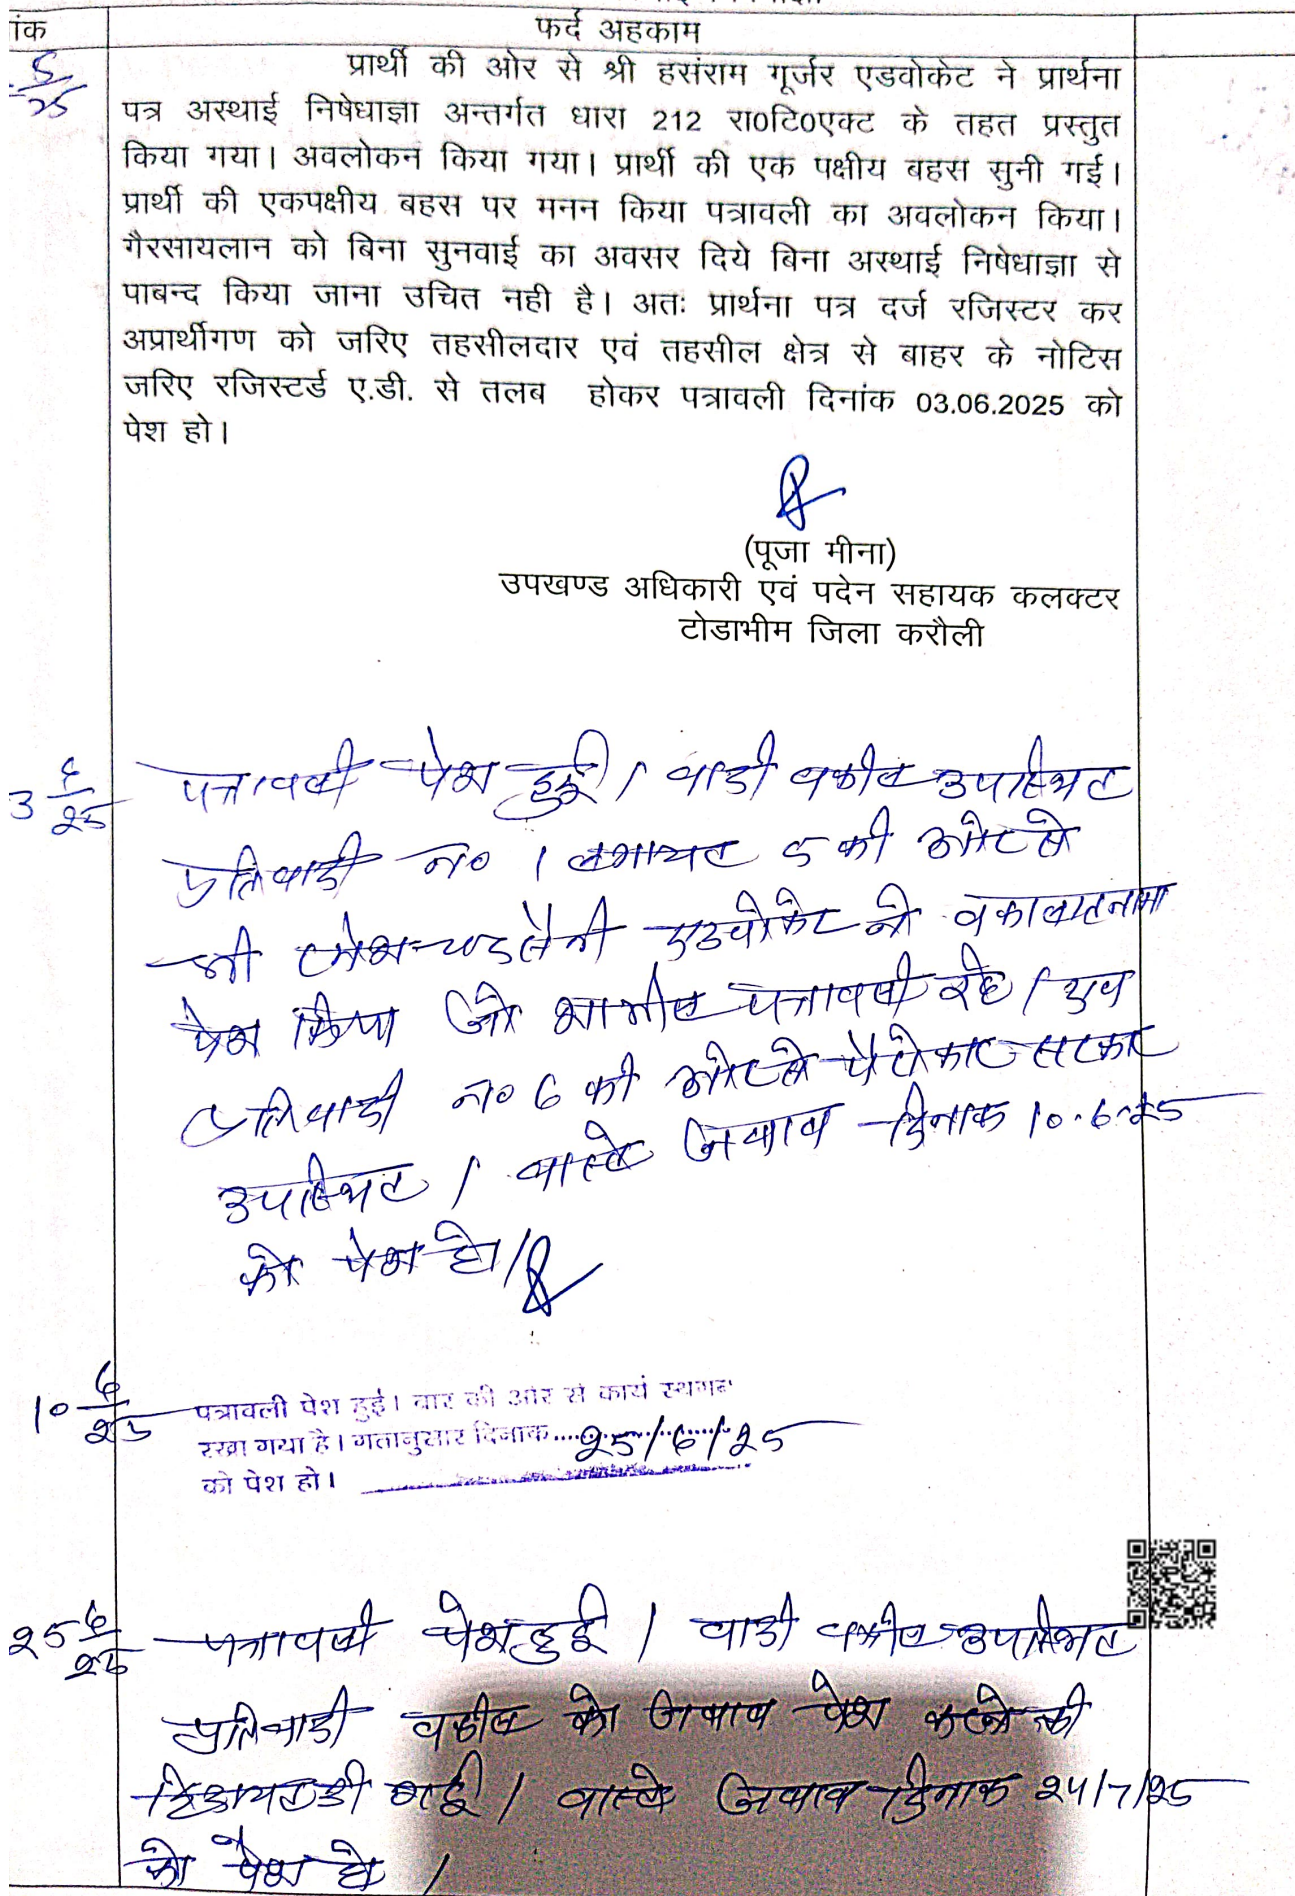 ांक
फर्द अहकाम
5/25
प्रार्थी की ओर से श्री हसंराम गूर्जर एडवोकेट ने प्रार्थना
पत्र अस्थाई निषेधाज्ञा अन्तर्गत धारा 212 रा0टि0एक्ट के तहत प्रस्तुत
किया गया। अवलोकन किया गया। प्रार्थी की एक पक्षीय बहस सुनी गई।
प्रार्थी की एकपक्षीय बहस पर मनन किया पत्रावली का अवलोकन किया।
गैरसायलान को बिना सुनवाई का अवसर दिये बिना अस्थाई निषेधाज्ञा से
पाबन्द किया जाना उचित नही है। अतः प्रार्थना पत्र दर्ज रजिस्टर कर
अप्रार्थीगण को जरिए तहसीलदार एवं तहसील क्षेत्र से बाहर के नोटिस
जरिए रजिस्टर्ड ए.डी. से तलब होकर पत्रावली दिनांक 03.06.2025 को
पेश हो।
(पूजा मीना)
उपखण्ड अधिकारी एवं पदेन सहायक कलक्टर
टोडाभीम जिला करौली
3 6/25 पत्रावली पेश हुई। वादी वकील उपस्थित
प्रतिवादी न० 1 लगायत 5 की ओर से
श्री रमेशचन्द सैनी एडवोकेट ने वकालतनामा
पेश किया जो शामील पत्रावली रहे। एव
प्रतिवादी न० 6 की ओर से पैरोकार सरकार
उपस्थित। वास्ते जवाब दिनाक 10.6.25
को पेश हो।
10 6/25 पत्रावली पेश हुई। बार की ओर से कार्य स्थगन
रखा गया है। गतानुसार दिनाक 25/6/25
को पेश हो।
25 6/25 पत्रावली पेश हुई। वादी वकील उपस्थित
प्रतिवादी वकील को जवाब पेश करने की
हिदायत दी गई। वास्ते जवाब दिनाक 24/7/25
को पेश हो।